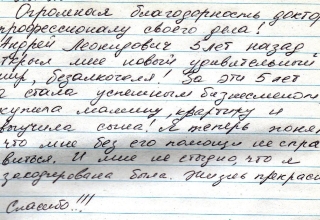 Огромная благодарность доктор
профессионалу своего дела!
Андрей Леонидович 5 лет назад
крыл мне новый удивительный
мир, безалкоголя! За эти 5 лет
я стала успешным бизнесменом
купила машину, квартиру и
выучила сына! А теперь понят
что мне без его помощи не спра
виться. И мне не стыдно, что я
закодирована была. Жизнь прекрасн
Спасибо..!!!